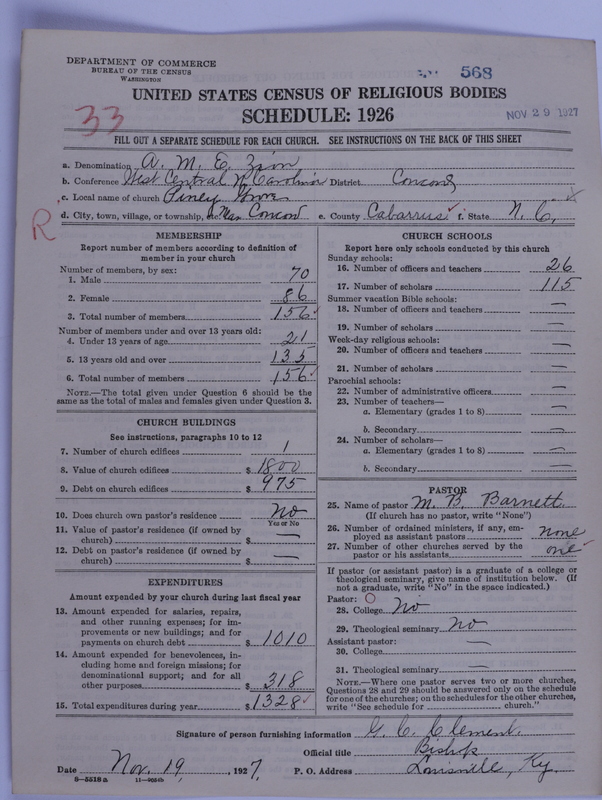 DEPARTMENT OF COMMERCE
BUREAU OF THE CENSUS
WASHINGTON
568
UNITED STATES CENSUS OF RELIGIOUS BODIES
SCHEDULE: 1926
NOV 29 1927
33
FILL OUT A SEPARATE SCHEDULE FOR EACH CHURCH. SEE INSTRUCTIONS ON THE BACK OF THIS SHEET
a. Denomination A. M. E. Zion
b. Conference West Central N Carolina District Concord
c. Local name of church Piney Grove
d. City, town, village, or township, or Near Concord e. County Cabarrus f. State N. C.
R
MEMBERSHIP
Report number of members according to definition of member in your church
Number of members, by sex:
1. Male 70
2. Female 86
3. Total number of members 156
Number of members under and over 13 years old:
4. Under 13 years of age 21
5. 13 years old and over 135
6. Total number of members 156
NOTE.—The total given under Question 6 should be the
same as the total of males and females given under Question 3.
CHURCH BUILDINGS
See instructions, paragraphs 10 to 12
7. Number of church edifices 1
8. Value of church edifices $ 1800
9. Debt on church edifices $ 975
10. Does church own pastor's residence No
Yes or No
11. Value of pastor's residence (if owned by
church) $ —
12. Debt on pastor's residence (if owned by
church) $ —
EXPENDITURES
Amount expended by your church during last fiscal year
13. Amount expended for salaries, repairs,
and other running expenses; for im-
provements or new buildings; and for
payments on church debt $ 1010
14. Amount expended for benevolences, in-
cluding home and foreign missions; for
denominational support; and for all
other purposes $ 318
15. Total expenditures during year $ 1328
CHURCH SCHOOLS
Report here only schools conducted by this church
Sunday schools:
16. Number of officers and teachers 26
17. Number of scholars 115
Summer vacation Bible schools:
18. Number of officers and teachers —
19. Number of scholars —
Week-day religious schools:
20. Number of officers and teachers —
21. Number of scholars —
Parochial schools:
22. Number of administrative officers —
23. Number of teachers—
a. Elementary (grades 1 to 8) —
b. Secondary —
24. Number of scholars—
a. Elementary (grades 1 to 8) —
b. Secondary —
PASTOR
25. Name of pastor M. B. Barnett.
(If church has no pastor, write "None")
26. Number of ordained ministers, if any, em-
ployed as assistant pastors none
27. Number of other churches served by the
pastor or his assistants one
If pastor (or assistant pastor) is a graduate of a college or
theological seminary, give name of institution below. (If
not a graduate, write "No" in the space indicated.)
Pastor:
28. College No
29. Theological seminary No
Assistant pastor:
30. College —
31. Theological seminary —
NOTE.—Where one pastor serves two or more churches,
Questions 28 and 29 should be answered only on the schedule
for one of the churches; on the schedules for the other churches,
write "See schedule for ______ church."
Signature of person furnishing information G. C. Clement.
Official title Bishop
Date Nov. 19, 1927. P. O. Address Louisville, Ky.
8-5518 a